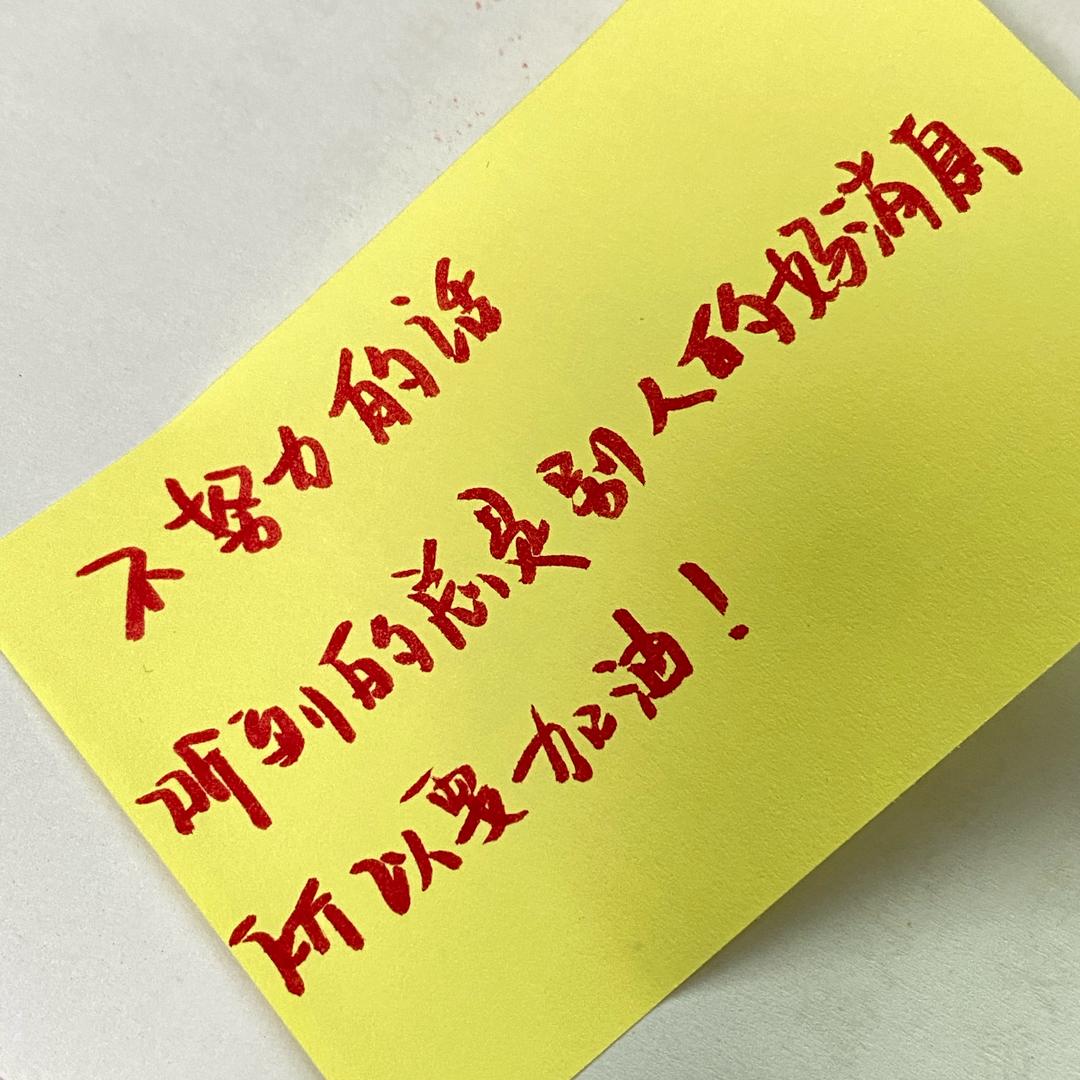 不努力的话
听到的总是别人的好消息
所以要加油！